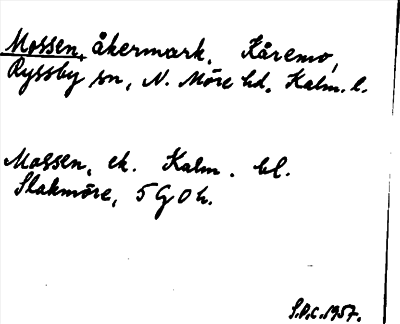 Mossen, åkermark. Kåremo,
Ryssby sn, N. Möre hd, Kalm. l.
Mossen, ek. Kalm. bl.
Slakmöre, 5 G O h.
S.P.C. 1957.